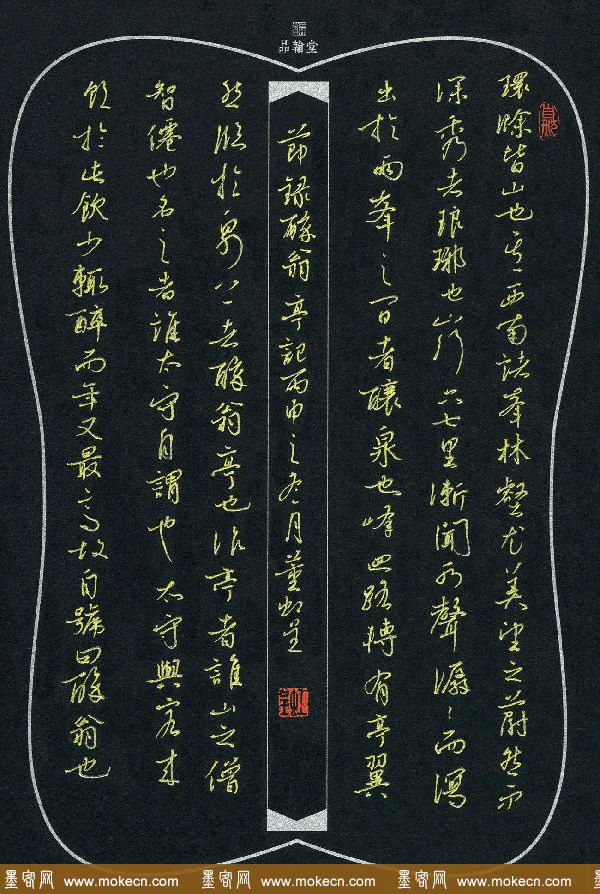 品翰堂
環滁皆山也其西南諸峯林壑尤美望之蔚然而
深秀者琅琊也山行六七里漸聞水聲潺々而瀉
出於兩峯之間者釀泉也峰回路轉有亭翼
然臨於泉上者醉翁亭也作亭者誰山之僧
智僊也名之者誰太守自謂也太守與客來
飲於此飲少輒醉而年又最高故自號曰醉翁也
節錄醉翁亭記丙申之冬月董虹呈
墨客网 www.mokecn.com 墨客网 www.mokecn.com 墨客网 www.mokecn.com